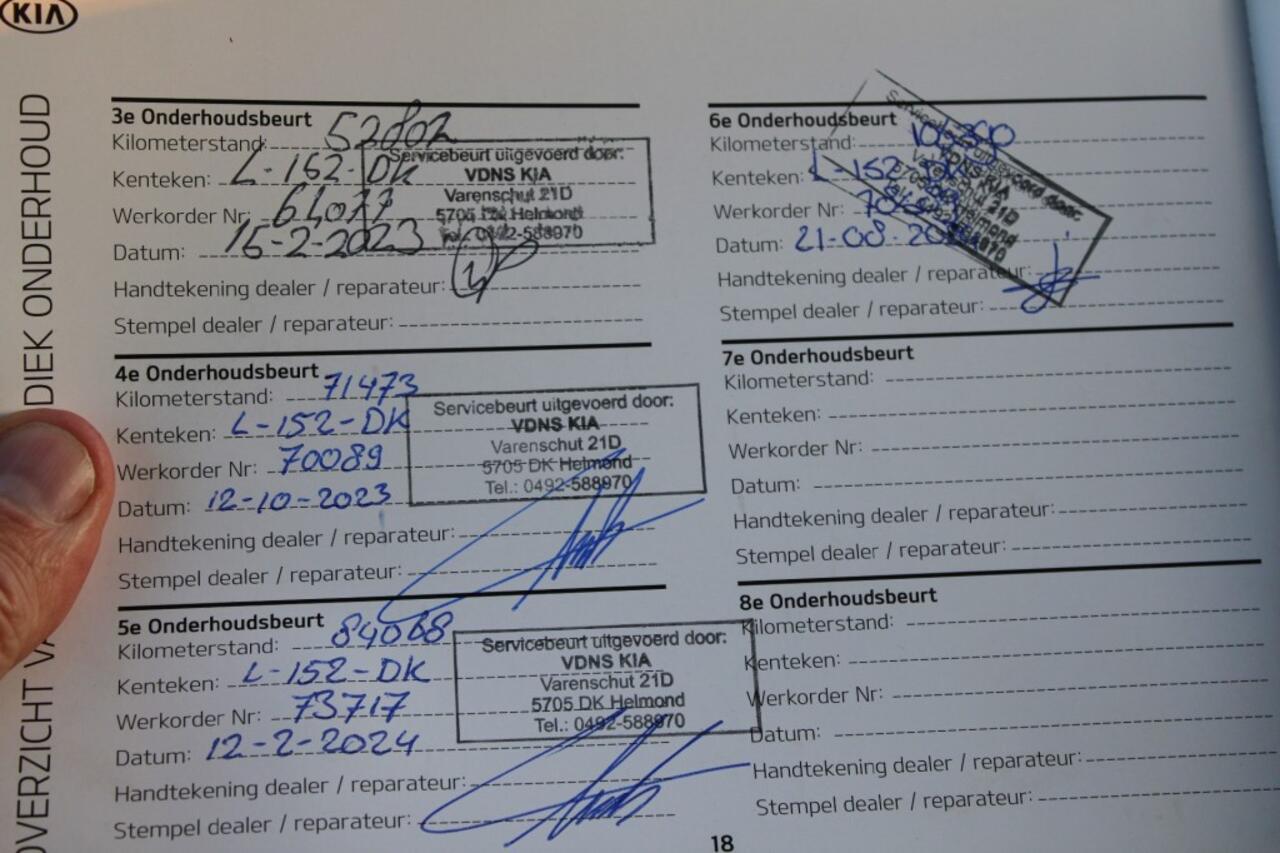 KIA
OVERZICHT VA
DIEK ONDERHOUD
3e Onderhoudsbeurt
Kilometerstand: 52802
Kenteken: L-152-DK
Werkorder Nr:
Datum: 2-2023
Handtekening dealer / reparateur:
Stempel dealer / reparateur:
Servicebeurt uitgevoerd door:
VDNS KIA
Varenschut 21D
5705 DK Helmond
Tel.: 0492-588970
4e Onderhoudsbeurt
Kilometerstand: 71473
Kenteken: L-152-DK
Werkorder Nr: 70089
Datum: 12-10-2023
Handtekening dealer / reparateur:
Stempel dealer / reparateur:
Servicebeurt uitgevoerd door:
VDNS KIA
Varenschut 21D
5705 DK Helmond
Tel.: 0492-588970
5e Onderhoudsbeurt
Kilometerstand: 84068
Kenteken: L-152-DK
Werkorder Nr: 73717
Datum: 12-2-2024
Handtekening dealer / reparateur:
Stempel dealer / reparateur:
Servicebeurt uitgevoerd door:
VDNS KIA
Varenschut 21D
5705 DK Helmond
Tel.: 0492-588970
6e Onderhoudsbeurt
Kilometerstand:
Kenteken: L-152
Werkorder Nr:
Datum: 21-08-
Handtekening dealer / reparateur:
Stempel dealer / reparateur:
VDNS KIA
7e Onderhoudsbeurt
Kilometerstand:
Kenteken:
Werkorder Nr:
Datum:
Handtekening dealer / reparateur:
Stempel dealer / reparateur:
8e Onderhoudsbeurt
Kilometerstand:
Kenteken:
Werkorder Nr:
Datum:
Handtekening dealer / reparateur:
Stempel dealer / reparateur:
18